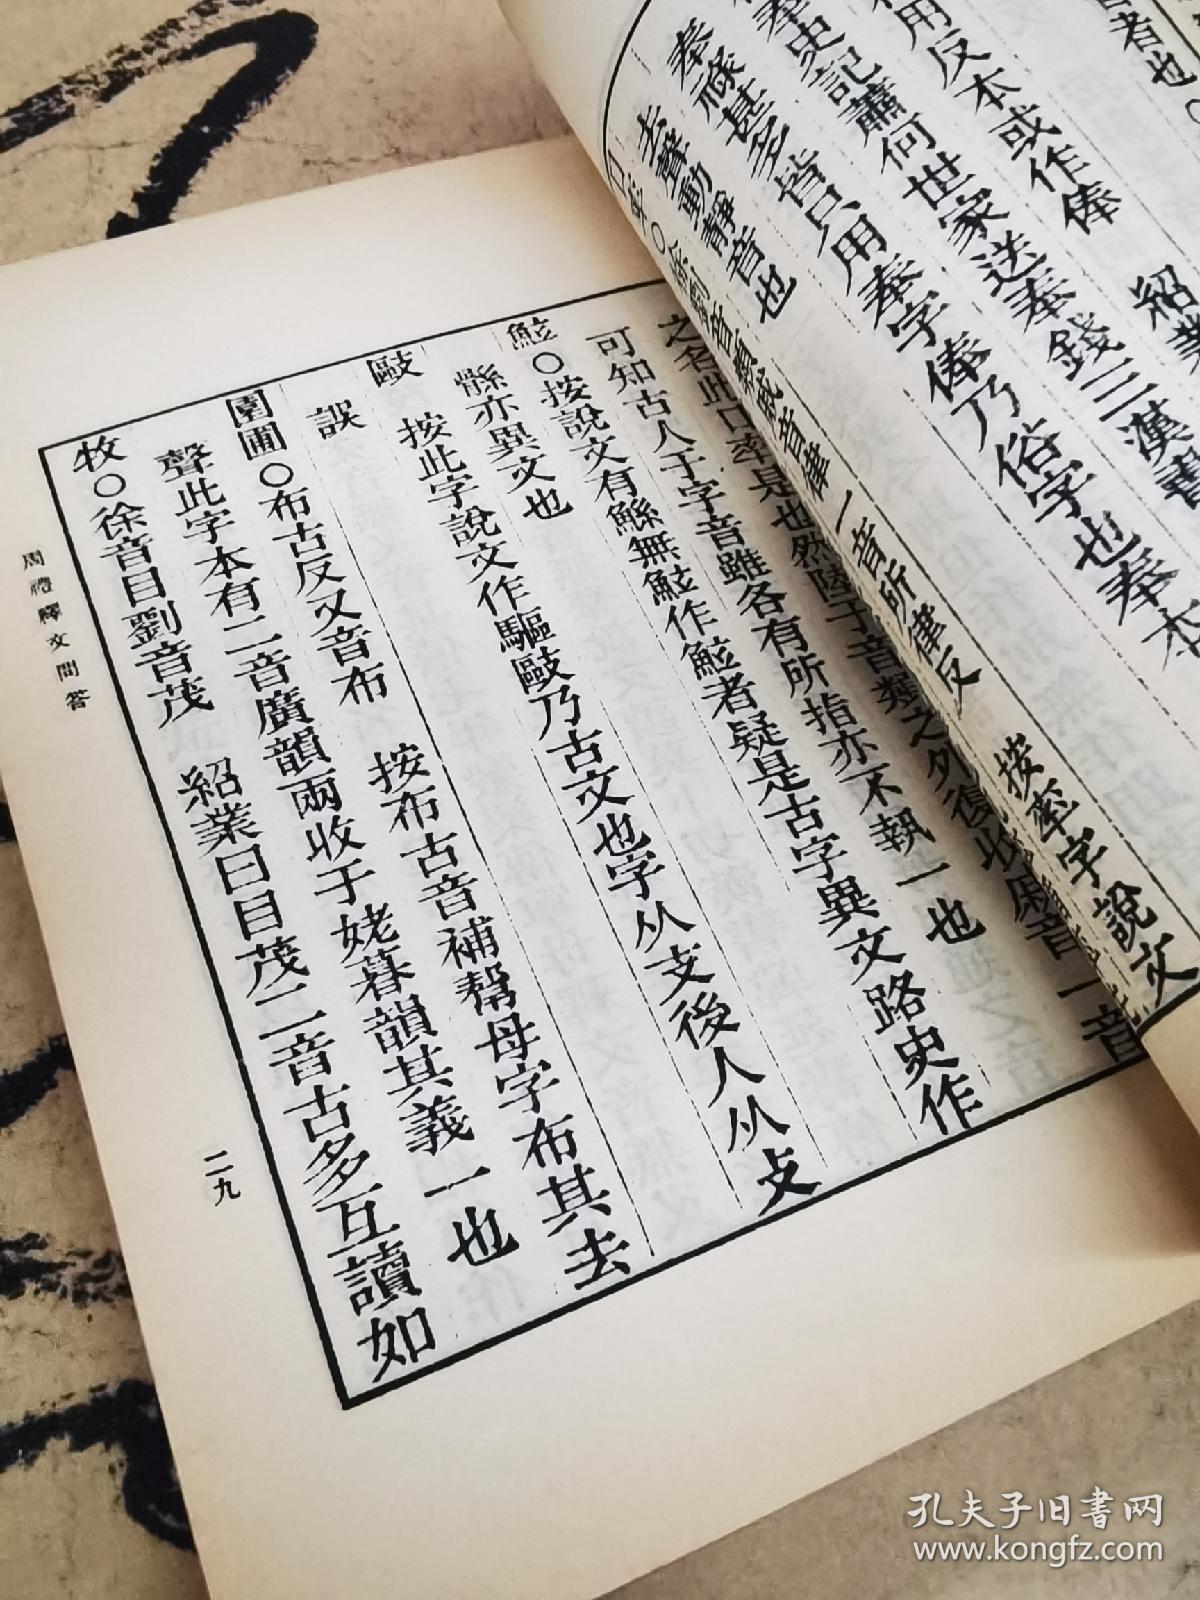 者也○
用反本或作俸 紹業
奉史記蕭何世家送奉錢三漢書
奉祿甚至皆只用奉字俸乃俗字也奉本
去聲動靜音也
率○徐劉音類戚音律一音所律反 按率字說文
之名此口率是也然陸于音類之外復收戚音一音
可知古人于字音雖各有所指亦不執一也
鮌○按說文有鯀無鮌作鮌者疑是古字異文路史作
鯀亦異文也
敺 按此字說文作驅敺乃古文也字从攴後人从攵
誤
園圃○布古反又音布 按布古音補幫母字布其去
聲此字本有二音廣韻兩收于姥暮韻其義一也
牧○徐音目劉音茂 紹業曰目茂二音古多互讀如
周禮釋文問答
二九
孔夫子旧书网
www.kongfz.com